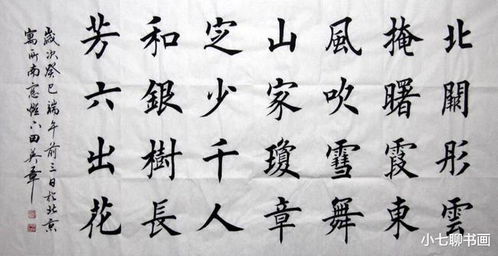 北闕彤雲
掩曙霞東
風吹雪舞
山家瓊章
定少千人
和銀樹長
芳六出花
歲次癸巳端午前三日於北京
寓所南窓燈下田英章
小七聊书画